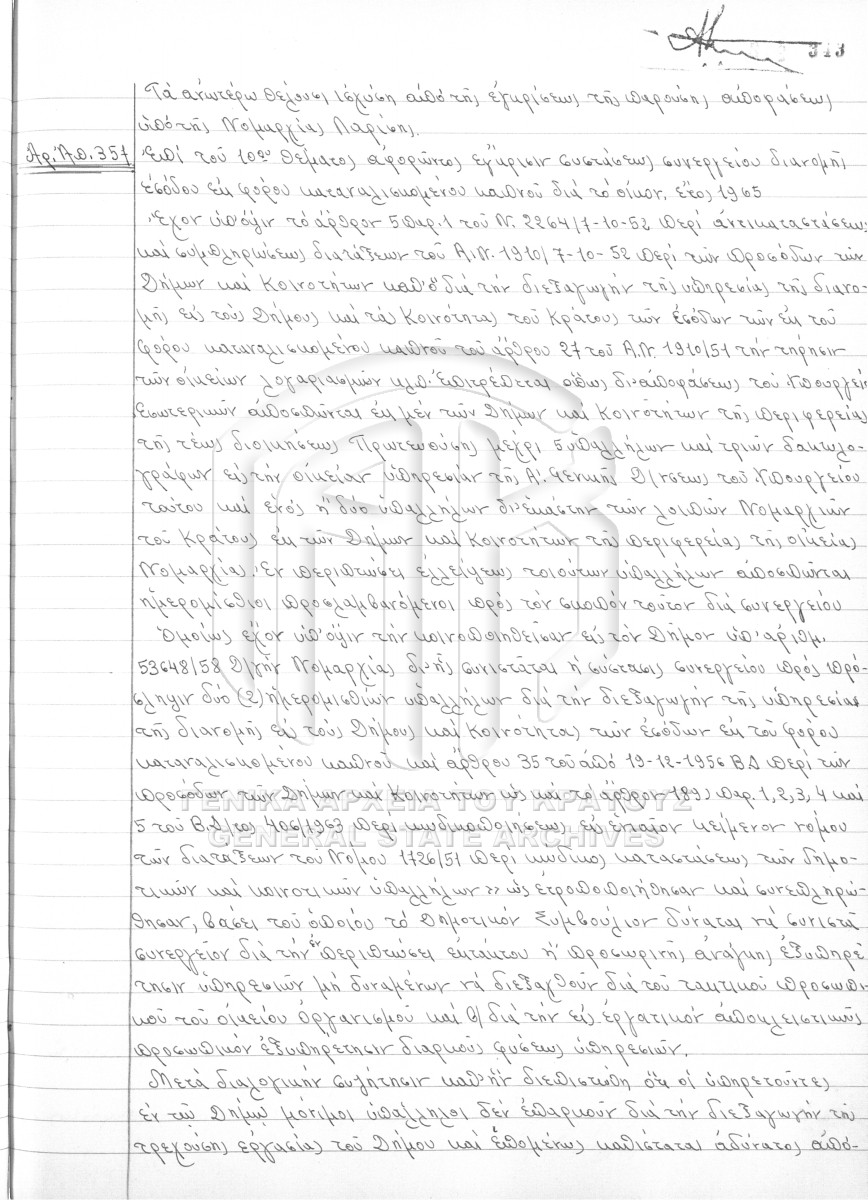 343
Τά ἀνωτέρω θέλουσι ἰσχύση ἀπό τῆς ἐγκρίσεως τῆς παρούσης ἀποφάσεως
ὑπό τῆς Νομαρχίας Λαρίσης.
Ἀρ. Ἀπ. 351 Ἐπί τοῦ 10ου θέματος ἀφορῶντος ἔγκρισιν συστάσεως συνεργείου διανομῆς
ἐσόδου ἐκ φόρου καταναλισκομένου καπνοῦ διά τό οἰκον. ἔτος 1965
Ἔχον ὑπ' ὄψιν τό ἄρθρον 5 παρ. 1 τοῦ Ν. 2264/7-10-52 περί ἀντικαταστάσεως
καί συμπληρώσεως διατάξεων τοῦ Α.Ν. 1910/7-10-52 περί τῶν προσόδων τῶν
Δήμων καί Κοινοτήτων καθ' ὅ διά τήν διεξαγωγήν τῆς ὑπηρεσίας τῆς διανο-
μῆς εἰς τούς Δήμους καί τάς Κοινότητας τοῦ Κράτους τῶν ἐσόδων τῶν ἐκ τοῦ
φόρου καταναλισκομένου καπνοῦ τοῦ ἄρθρου 27 τοῦ Α.Ν. 1910/51 τήν τήρησιν
τῶν οἰκείων λογαριασμῶν κλπ. ἐπιτρέπεται ὅπως δι' ἀποφάσεως τοῦ Ὑπουργείου
Ἐσωτερικῶν ἀποσπῶνται ἐκ μέν τῶν Δήμων καί Κοινοτήτων τῆς περιφερείας
τῆς τέως διοικήσεως Πρωτευούσης μέχρι 5 ὑπαλλήλων καί τριῶν δακτυλο-
γράφων εἰς τήν οἰκείαν ὑπηρεσίαν τῆς Α'. Γενικῆς Δ/νσεως τοῦ Ὑπουργείου
τούτου καί ἑνός ἤ δύο ὑπαλλήλων δι' ἑκάστην τῶν λοιπῶν Νομαρχιῶν
τοῦ Κράτους ἐκ τῶν Δήμων καί Κοινοτήτων τῆς περιφερείας τῆς οἰκείας
Νομαρχίας. Ἐν περιπτώσει ἐλλείψεως τοιούτων ὑπαλλήλων ἀποσπῶνται
ἡμερομίσθιοι προσλαμβανόμενοι πρός τόν σκοπόν τοῦτον διά συνεργείου
Ὁμοίως ἔχον ὑπ' ὄψιν τήν κοινοποιηθεῖσαν εἰς τόν Δῆμον ὑπ' ἀριθμ.
53648/58 Δ/γήν Νομαρχίας δι' ἧς συνιστᾶται ἡ σύστασις συνεργείου πρός πρό-
σληψιν δύο (2) ἡμερομισθίων ὑπαλλήλων διά τήν διεξαγωγήν τῆς ὑπηρεσίας
τῆς διανομῆς εἰς τούς Δήμους καί Κοινότητας τῶν ἐσόδων ἐκ τοῦ φόρου
καταναλισκομένου καπνοῦ καί ἄρθρου 35 τοῦ ἀπό 19-12-1956 Β.Δ περί τῶν
προσόδων τῶν Δήμων καί Κοινοτήτων ὡς καί τό ἄρθρον 189 παρ. 1, 2, 3, 4 καί
5 τοῦ Β.Δ/τος 406/1963 περί κωδικοποιήσεως εἰς ἑνιαῖον κείμενον νόμου
τῶν διατάξεων τοῦ Νόμου 1726/51 περί κώδικος καταστάσεως τῶν δημο-
τικῶν καί κοινοτικῶν ὑπαλλήλων >> ὡς ἐτροποποιήθησαν καί συνεπληρώ-
θησαν, βάσει τοῦ ὁποίου τό Δημοτικόν Συμβούλιον δύναται νά συνιστᾶ
συνεργεῖον διά τήν ἐν περιπτώσει ἐκτάκτου ἤ προσωρινῆς ἀνάγκης ἐξυπηρέ-
τησιν ὑπηρεσιῶν μή δυναμένων νά διεξαχθοῦν διά τοῦ τακτικοῦ προσωπι-
κοῦ τοῦ οἰκείου Ὀργανισμοῦ καί β/ διά τήν εἰς ἐργατικόν ἀποκλειστικῶς
προσωπικόν ἐξυπηρέτησιν διαρκοῦς φύσεως ὑπηρεσιῶν.
Μετά διαλογικήν συζήτησιν καθ' ἥν διεπιστώθη ὅτι οἱ ὑπηρετοῦντες
ἐν τῷ Δήμῳ μόνιμοι ὑπάλληλοι δέν ἐπαρκοῦν διά τήν διεξαγωγήν τῆς
τρεχούσης ἐργασίας τοῦ Δήμου καί ἑπομένως καθίσταται ἀδύνατος ἀπό-
ΓΕΝΙΚΑ ΑΡΧΕΙΑ ΤΟΥ ΚΡΑΤΟΥΣ
GENERAL STATE ARCHIVES